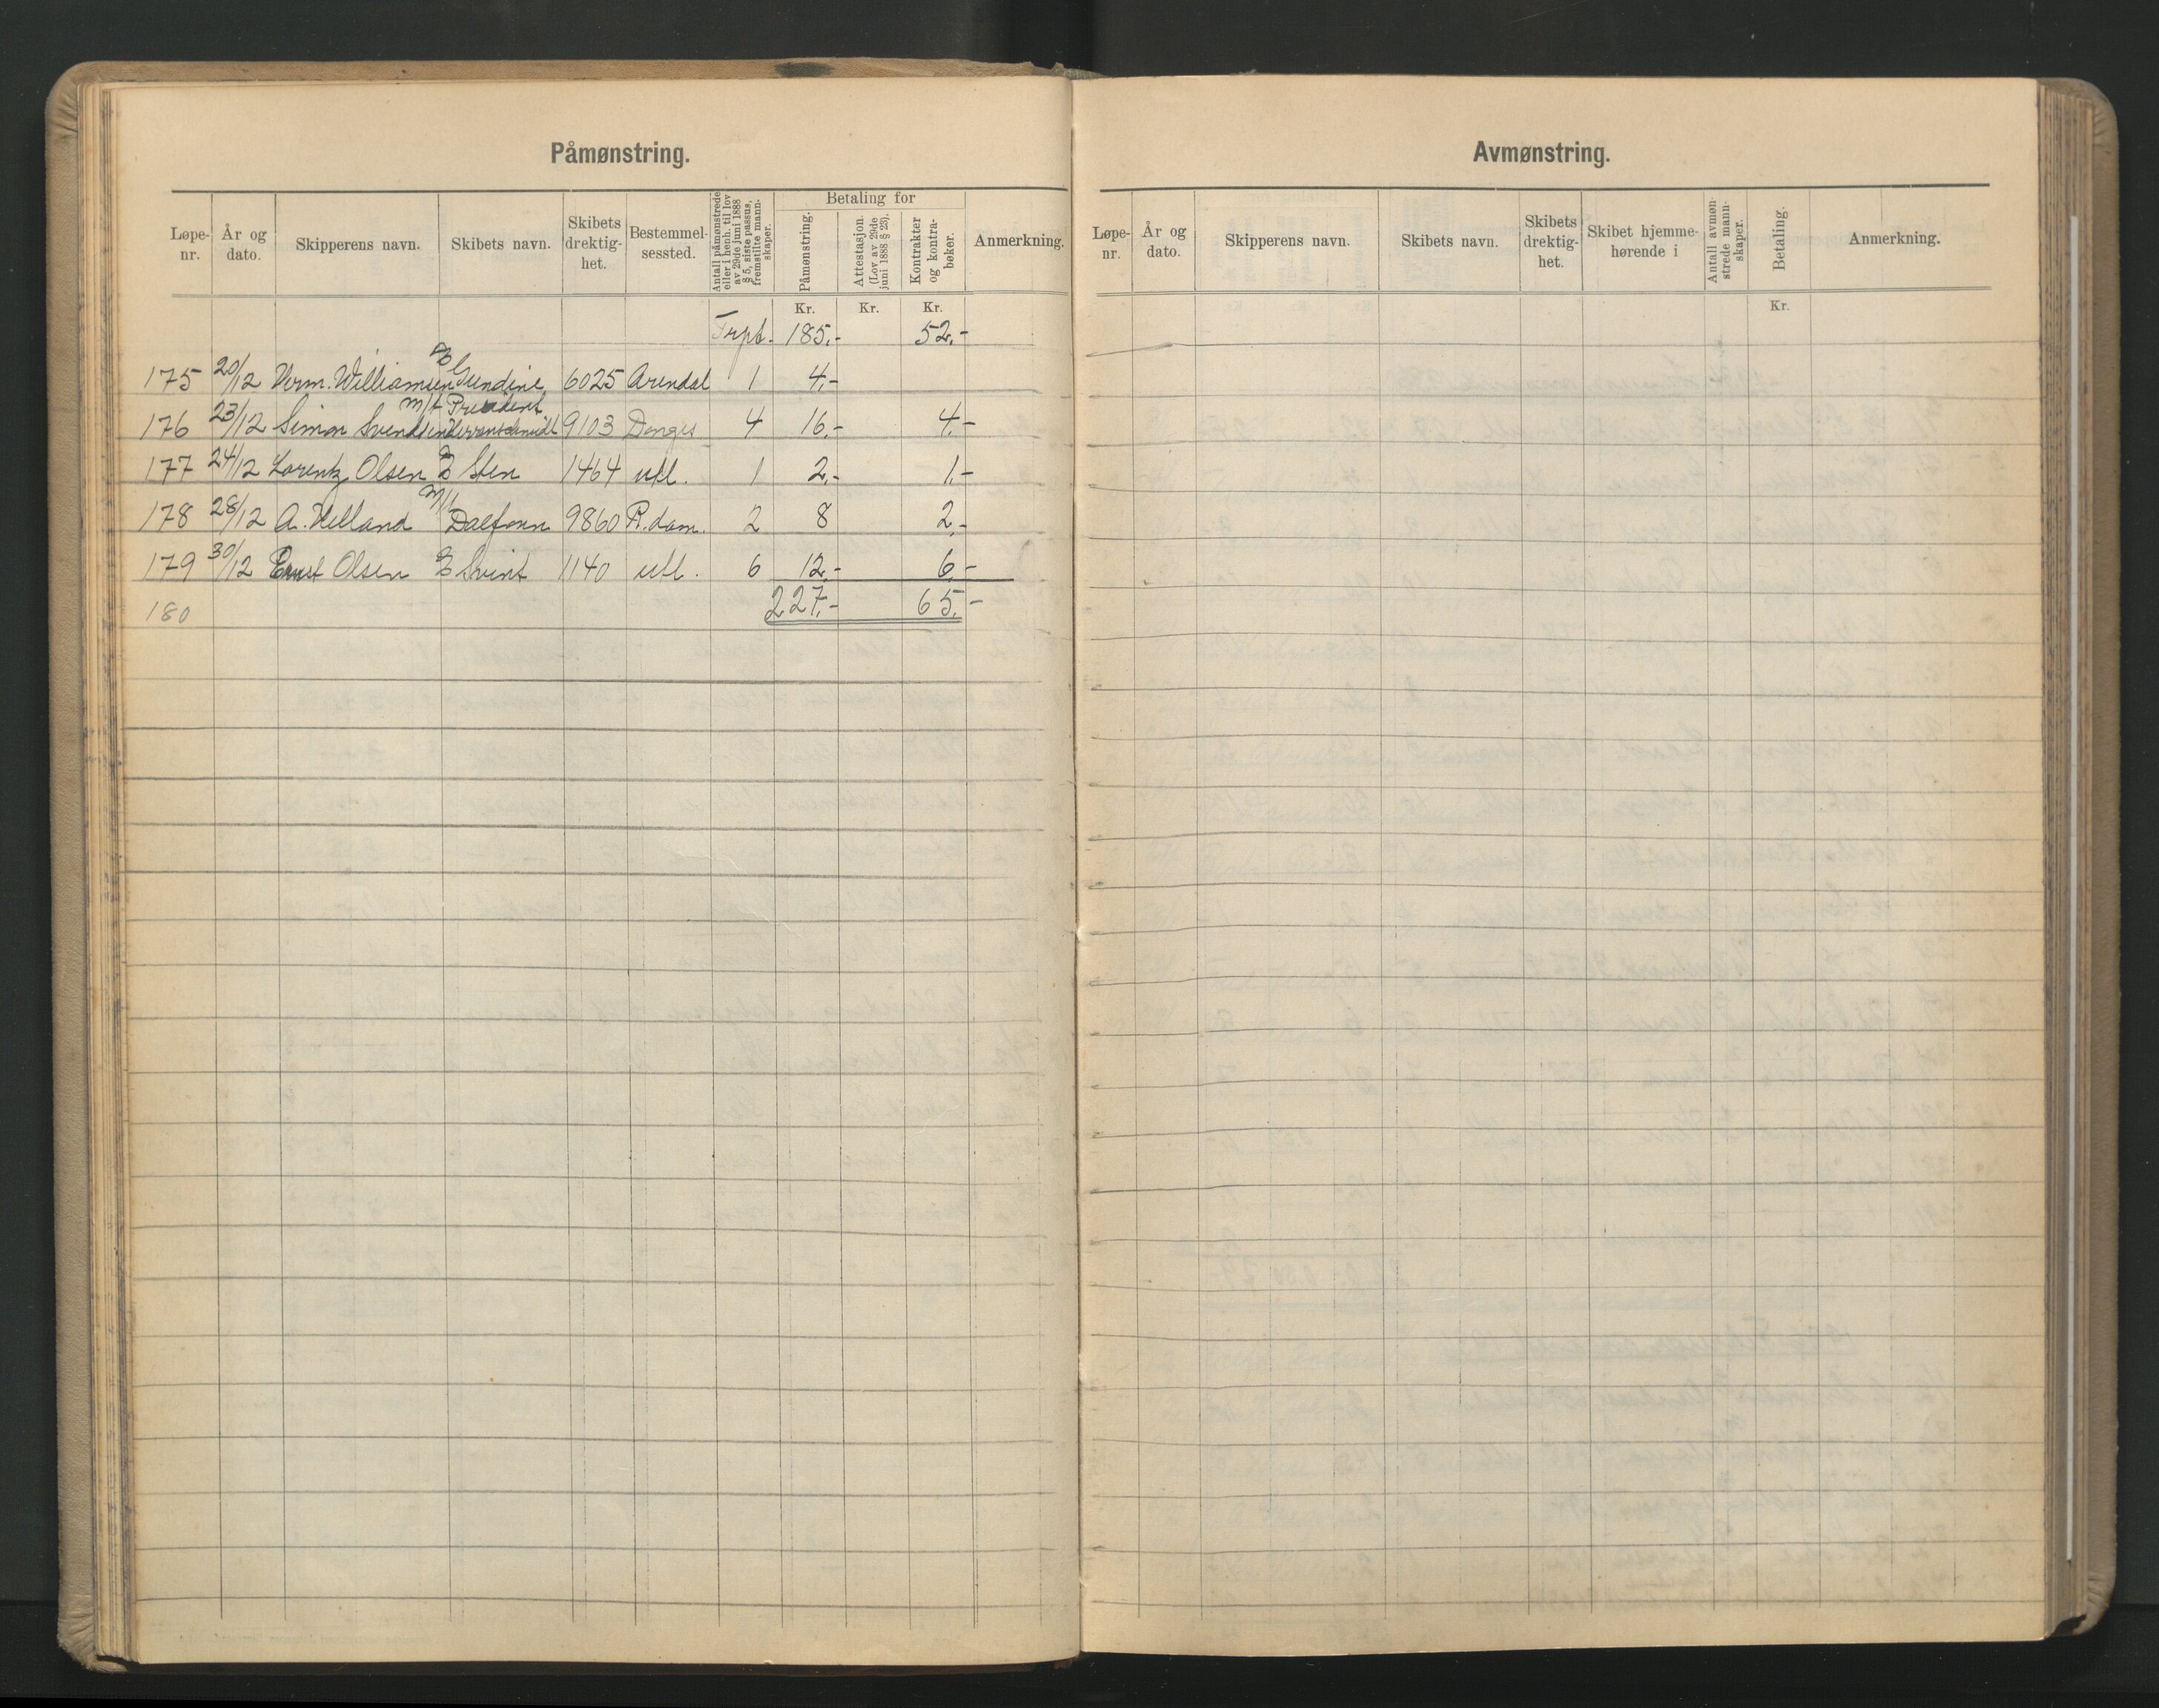 Påmønstring.
Løpe-nr. År og dato. Skipperens navn. Skibets navn. Skibets drektig-het. Bestemmel-sessted. Antall påmønstrede eller i henh. til lov av 29de juni 1888 § 5, siste passus, fremstilte mann-skaper. Betaling for Påmønstring. Attestasjon. (Lov av 29de juni 1888 § 23). Kontrakter og kontra-bøker. Anmerkning.
Kr. Kr. Kr.
Frpt. 185.- 52.-
175 20/12 Herm. Williamsen Gundine 6025 Arendal 1 4.-
m/t President
176 23/12 Simon Svendsen 9103 Donges 4 16.- 4.-
177 24/12 Lorentz Olsen Sten 1464 utl. 1 2.- 1.-
178 28/12 A. Helland Dalfonn 9860 R.dam. 2 8 2.-
179 30/12 Ernst Olsen Svint 1140 utl. 6 12.- 6.-
180 227.- 65.-
Avmønstring.
Løpe-nr. År og dato. Skipperens navn. Skibets navn. Skibets drektig-het. Skibet hjemme-hørende i Antall avmøn-strede mann-skaper. Betaling. Anmerkning.
Kr.